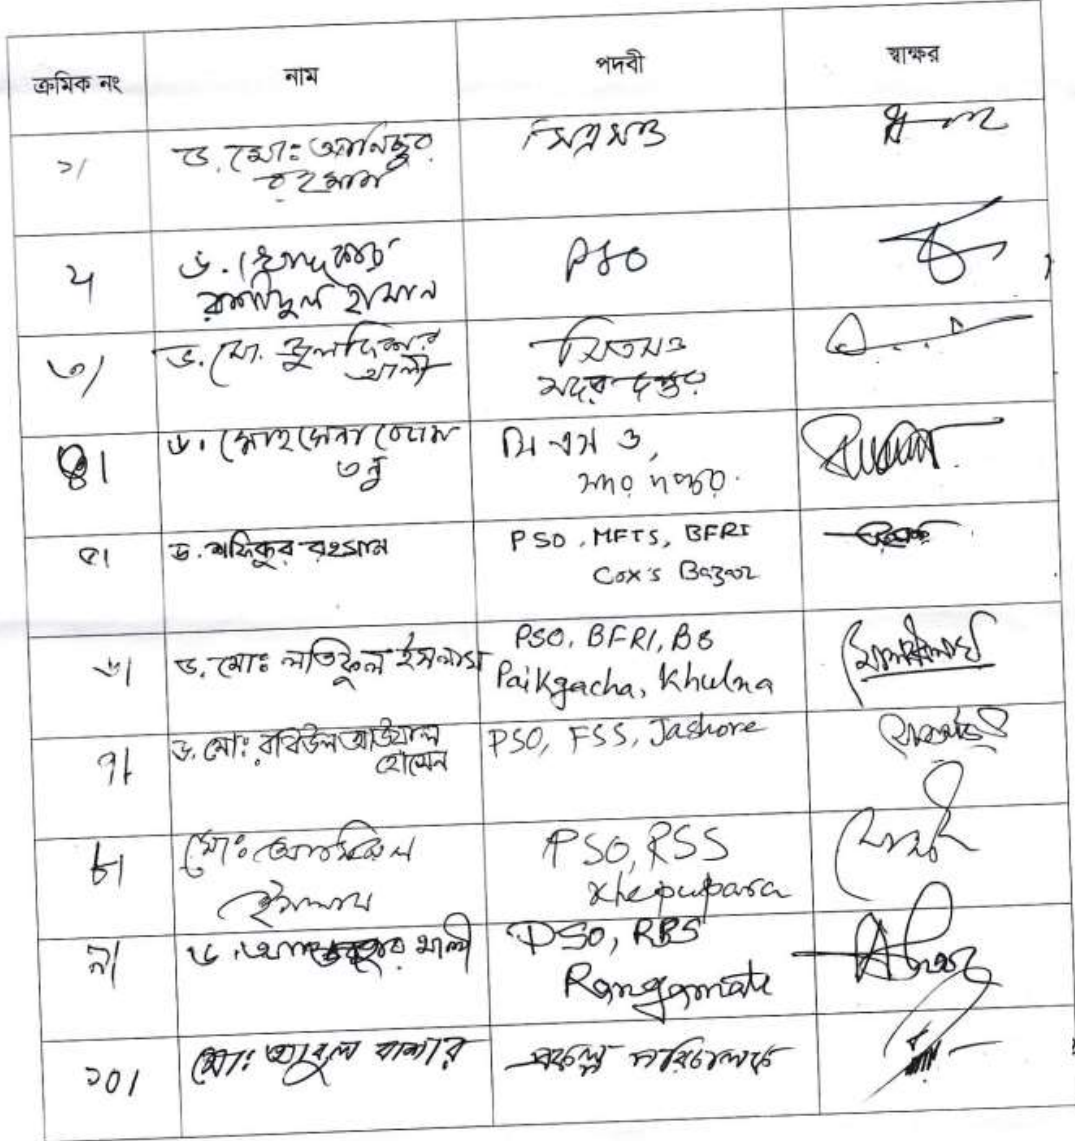 ক্রমিক নং নাম পদবী স্বাক্ষর
১/ ড. মোঃ আনিছুর সিএসও
রহমান
২/ ড. PSO
রশীদুল হাসান
৩/ ড. মো. জুলফিকার সিএসও
আলী সদর দপ্তর
৪। ড. মোহসেনা বেগম পি এস ও,
তনু সদর দপ্তর.
৫। ড. শফিকুর রহমান PSO, MFTS, BFRI
Cox's Bazar
৬। ড. মোঃ লতিফুল ইসলাম PSO, BFRI, BS
Paikgacha, Khulna
৭। ড. মোঃ রবিউল আউয়াল PSO, FSS, Jashore
হোসেন
৮। মোঃ PSO, RSS
ইসলাম Khepupara
৯। ড. আলী PSO, RBS
Rangamati
১০। মোঃ আবুল বাশার প্রকল্প পরিচালক